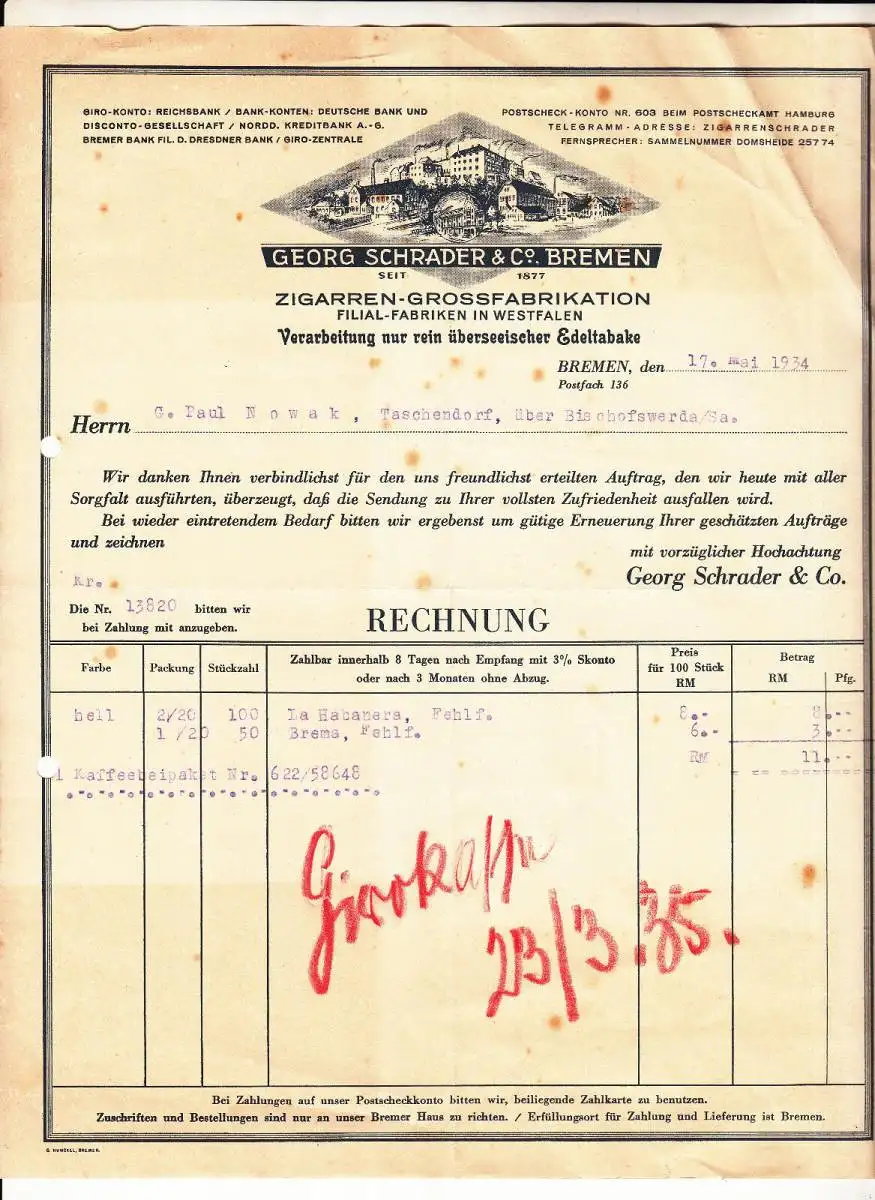 GIRO-KONTO: REICHSBANK / BANK-KONTEN: DEUTSCHE BANK UND
DISCONTO-GESELLSCHAFT / NORDD. KREDITBANK A.-G.
BREMER BANK FIL. D. DRESDNER BANK / GIRO-ZENTRALE
POSTSCHECK-KONTO NR. 603 BEIM POSTSCHECKAMT HAMBURG
TELEGRAMM-ADRESSE: ZIGARRENSCHRADER
FERNSPRECHER: SAMMELNUMMER DOMSHEIDE 25774
GEORG SCHRADER & Co. BREMEN
SEIT 1877
ZIGARREN-GROSSFABRIKATION
FILIAL-FABRIKEN IN WESTFALEN
Verarbeitung nur rein überseeischer Edeltabake
BREMEN, den 17. Mai 1934
Postfach 136
Herrn G. Paul Nowak, Taschendorf, über Bischofswerda/Sa.
Wir danken Ihnen verbindlichst für den uns freundlichst erteilten Auftrag, den wir heute mit aller
Sorgfalt ausführten, überzeugt, daß die Sendung zu Ihrer vollsten Zufriedenheit ausfallen wird.
Bei wieder eintretendem Bedarf bitten wir ergebenst um gütige Erneuerung Ihrer geschätzten Aufträge
und zeichnen
mit vorzüglicher Hochachtung
Georg Schrader & Co.
Kr.
Die Nr. 13820 bitten wir
bei Zahlung mit anzugeben.
RECHNUNG
Farbe Packung Stückzahl
Zahlbar innerhalb 8 Tagen nach Empfang mit 3% Skonto
oder nach 3 Monaten ohne Abzug.
Preis
für 100 Stück
RM
Betrag
RM Pfg.
hell 2/20 100 La Habanera, Fehlf. 8.- 8.--
1/20 50 Brema, Fehlf. 6.- 3.--
RM 11.--
1 Kaffeebeipaket Nr. 622/58648
Girokasse
23/3.35.
Bei Zahlungen auf unser Postscheckkonto bitten wir, beiliegende Zahlkarte zu benutzen.
Zuschriften und Bestellungen sind nur an unser Bremer Haus zu richten. / Erfüllungsort für Zahlung und Lieferung ist Bremen.